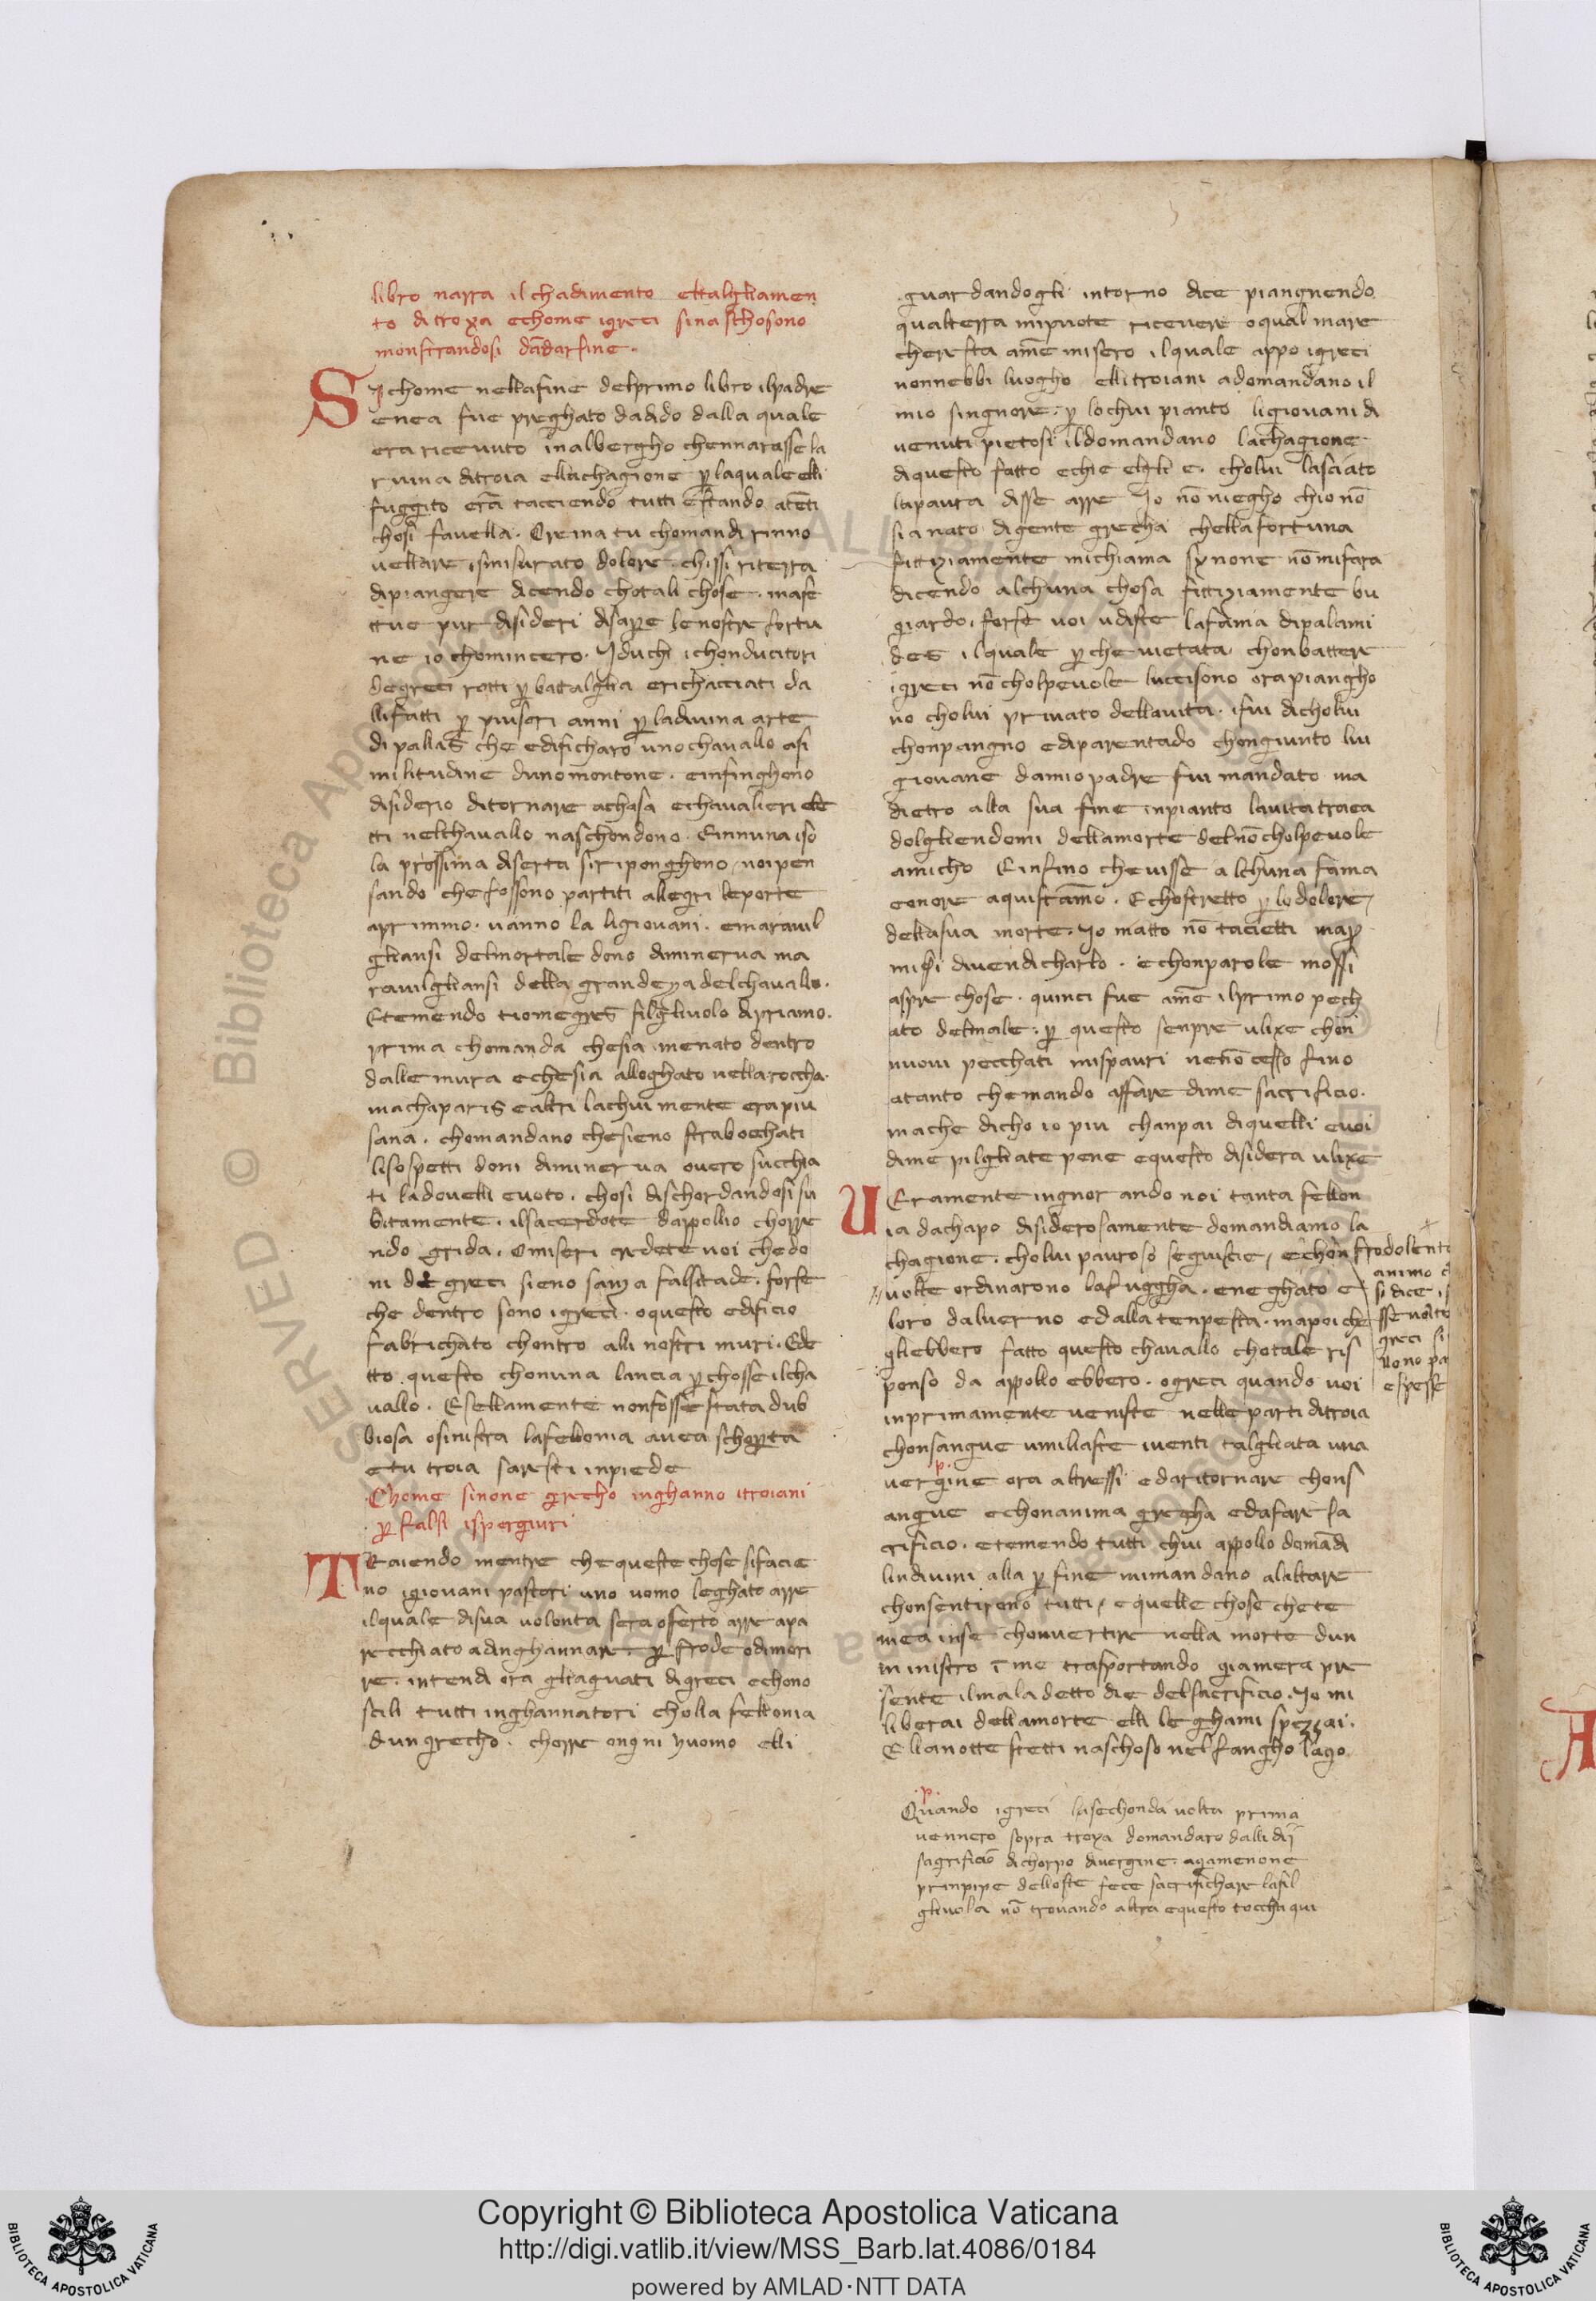 libro narra il chadimento ettalgliamen
to di troya echome igreci sinaschosono
monstrandosi dādarsine.
Sichome nellafine delprimo libro ilpadre
enea fue preghato dadido dalla quale
era ricevuto inalbergho chennarasse la
ruina ditroia ellachagione ꝑ laquale elli
fuggito erā tacciendo tutti estando atēti
chosi favella. Oreina tu chomandi rinno
vellare ismisurato dolore. chissi riterra
dipiangere dicendo chotali chose. mase
ttue pur disideri disape lenostre fortu
ne io chomincero. Iduchi ichonducitori
degreci rotti ꝑ battalglia erichacciati da
llifatti ꝑ piusori anni ꝑ ladivina arte
di pallas che edificharo uno chavallo asi
militudine dunomontone. einfingheno
disiderio ditornare achasa echavalieri ele
tti nelchavallo naschondono. Einnuna iso
la prossima diserta siriponghono, noipen
sando che fossono partiti allegri leporte
aprimmo. vanno la ligiovani. emaravil
gliansi delmortale dono diminerva ma
ravilgliansi della grandeza delchavallo.
Etemendo tiomegres filgliuolo dipriamo.
prima chomanda chesia menato dentro
dalle mura echesia alloghato nellaroccha.
machaparis ealtri lachui mente era piu
sana. chomandano chesieno straboc­chati
lisospetti doni diminerva overo succhia
ti ladovelli evoto. chosi dischordandosi su
bitamente. ilsacerdote dappollio chorre
ndo grida. omiseri credete voi chedo
ni de greci sieno sanza falsitade. forse
che dentro sono igreci. oquesto edificio
fabrichato chontro alli nostri muri. Ede
tto questo chonuna lancia ꝑchosse ilcha
vallo. Esellamente nonfosse stata dub
biosa osinistra lafellonia avea schoperta
etu troia saresti inpiede
Chome sinone grecho inghanno itroiani
ꝑ falsi ispergiuri
TRaiendo mentre che queste chose sifacie
no igiovani pastori uno uomo leghato arre
ilquale disua volonta sera offerto arre apa
recchiato adinghannare. ꝑ frode odimori
re. intendi ora gliaguati digreci echono
scili tutti inghannatori cholla fellonia
dungrecho. cherre ongni huomo elli
guardandogli intorno dice piangnendo
qualterra mipuote ricevere oqual mare
cheresta amē misero ilquale appo igreci
nonnebbi luogho elli troiani adomandano il
mio singnore. ꝑ lochui pianto ligiovani di
venuti pietosi ildomandano lachagione
diquesto fatto echie elgli e. cholui lasciato
lapaura disse arre Io nō niegho chio nō
sia nato digente grecha chella fortuna
fittiziamente michiama synone nōmifara
dicendo alchuna chosa fittiziamente bu
giardo. forse voi udiste lafama dipalami
des ilquale ꝑche vietata chonbattere
igreci nō cholpevole lucciseno ora piangho
no cholui privato dellavita. ifui dicholui
chonpangno ediparentado chongiunto lui
giovane damio padre fui mandato ma
dietro alla sua fine inpianto lavita traea
dolgliendomi dellamorte delnōcholpevole
amicho Einfino chevisse alchuna fama
eonore aquistamo. Echostretto ꝑ lo dolore
dellasua morte. Io matto nō tacietti maꝑ
misi divendicharlo. echonparole mossi
aspre chose. quinci fue amē ilprimo pech
ato delmale. ꝑ questo senpre ulixe chon
nuovi pecchati mispauri nenō cesso fino
atanto chemando affare dime sacrificio.
mache dicho io piu chanpai diquelli evoi
dime pilgliate pene equesto disidera ulixe
VEramente ingnorando noi tanta fellon
ia dachapo disiderosamente domandiamo la
chagione. cholui pauroso seguiscie, echon frodolento
animo
si dice
volte ordinarono lafuggha. eneghato e
loro dalverno edalla tenpesta. mapoi che
gliebbero fatto questo chavallo chotale ris
greci si
vono pa
e spesse
ponso da appollo ebbero. ogreci quando voi
inprimamente veniste nelle parti ditroia
chonsangue umiliaste iventi talgliata una
vergine ora altressi edaritornare chons
angue echonanima grecha edafare sa
crificio. etemendo tutti chui appollo domādi
lindivini alla ꝑ fine mimandano alaltare
chonsentirono tutti, equelle chose chete
mea inse chonvertire nella morte dun
ministro ī me trasportando giamera pre
sente ilmaladetto die delsacrificio. Io mi
liberai dellamorte elli leghami spezzai.
Ellanotte stetti naschoso nel fangho lago
.p.
Quando igreci lasechonda volta prima
vennero sopra troya domandaro dalli dii
sagrificio dichorpo divergine. agamenone
prinpipe delloste fece sacrifichare lafil
gliuola nō trovando altra equesto toccha qui